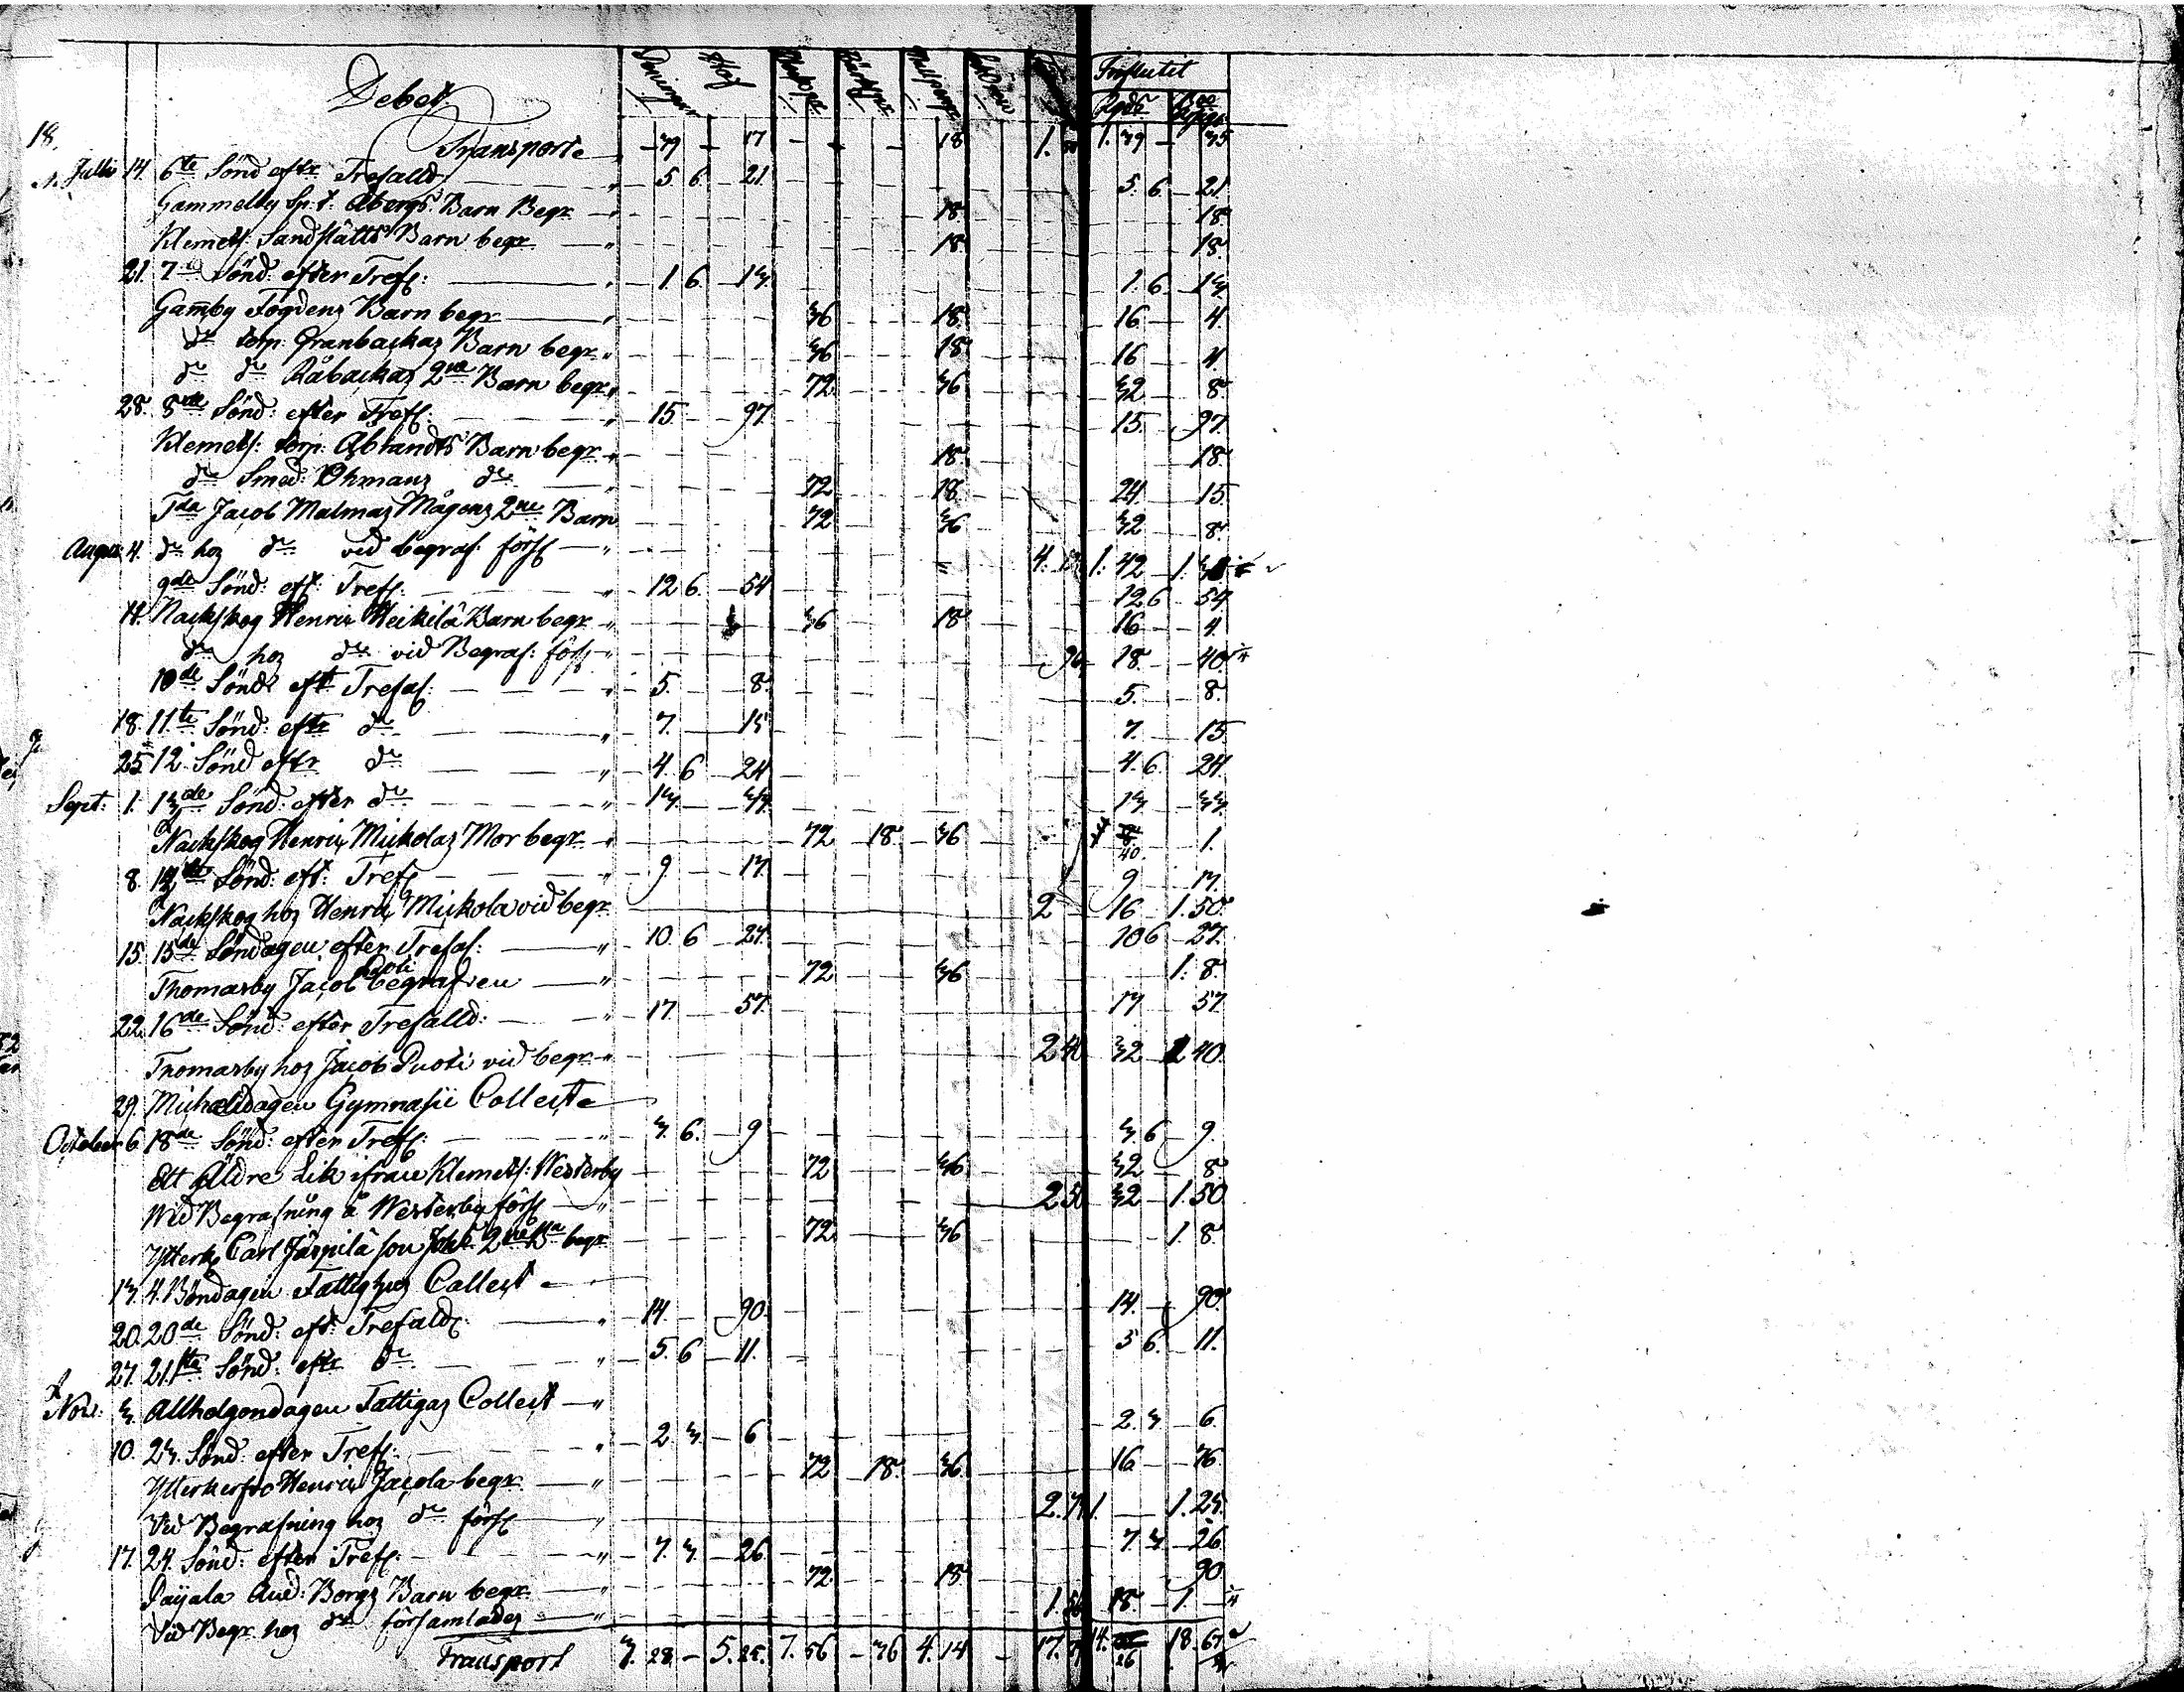 Debet
Influtit
Rgds
18.
Transport 39 17 18 1. 1. 39 35
Julii 14. 6te Sönd eftr Trefalld: 5. 6. 21. 5. 6 21
Gammelby Sp: t: Åbergs Barn Begr 18 18
Klemets: Sandstätts Barn begr 18 18.
21. 7de Sönd: efter Tref: 1 6. 13. 1. 6 13
Gamby Fogdens Barn begr 36 18. 16 4.
do torp: Granbackas Barn begr 36 18 16 4
do do Råbackas 2ne Barn begr 72 36 32 8
28. 8de Sönd: efter Tref: 15 97. 15. 97.
Klemets: torp: Åbrandts Barn begr 18. 18
do Smed: Öhmans do 72 18 24 15
Jacob Malmas Mågens 2ne Barn 72 36 32 8.
Augusti 4. do hos do vid begraf: förs: 4. 1. 42 1.
9de Sönd: eft: Tref: 12 6. 54 12 6 54
11. Nackskog Henrix Heikilä Barn begr 36 18 16 4
do hos do vid Begraf: förs: 96 18 40
10de Sönd: eft Trefal: 5. 8. 5. 8.
18. 11te Sönd: eftr do 7. 15 7. 15
25 12. Sönd eftr do 4. 6 24 4. 6. 24.
Sept: 1. 13de Sönd: efter do 13. 33. 13 33.
Nackskog Henrix Mickolas Mor begr 72 18 36 40 1.
8. 14de Sönd: eft: Tref: 9 17. 9 17.
Nackskog hos Henrix Mickola vid begr 2 16 1. 50.
15. 15de Söndagen efter Trefal: 10. 6 27. 10 6 27.
Thomasby Jacob Duoti begrafven 72 36 1. 8.
22. 16de Sönd: efter Trefalld: 17 57. 17 57
Thomasby hos Jacob Duoti vid begr 2 40 32 2 40.
29. Michaelidagen Gymnasii Collect
October 6. 18de Sönd: efter Tref: 3. 6. 9 3 6 9.
Ett äldre Lik ifrån Klemets: Westerby 72 36 32 8
Wid Begrafning å Westerby förs: 2 50 32 1. 50
Ytterk: Carl Järpilä son Joh: 2ne Bn begr 72 36 1 8.
13. 4. Böndagen Fattighus Collect
20. 20de Sönd: eft: Trefald: 14. 90. 14. 90.
27. 21ste Sönd: eftr do 5. 6 11. 5 6. 11.
Nov: 3. Allhelgondagen Fattigas Collect
10. 23. Sönd: efter Tref: 2. 3. 6 2. 3 6.
Ytterkersfro Henrix Jacola begr 72 18. 36 16 76.
Vid Begrafning hos do förs: 2. 1. 1. 25.
17. 24. Sönd: efter Tref: 7. 3. 26 7 3. 26
And: Borgs Barn begr 72 18 90
Vid Begr: hos do församlades 1. 18. 1
Transport 3. 28. 5. 25. 7. 56 36 4. 14 17. 14. 26 18. 67